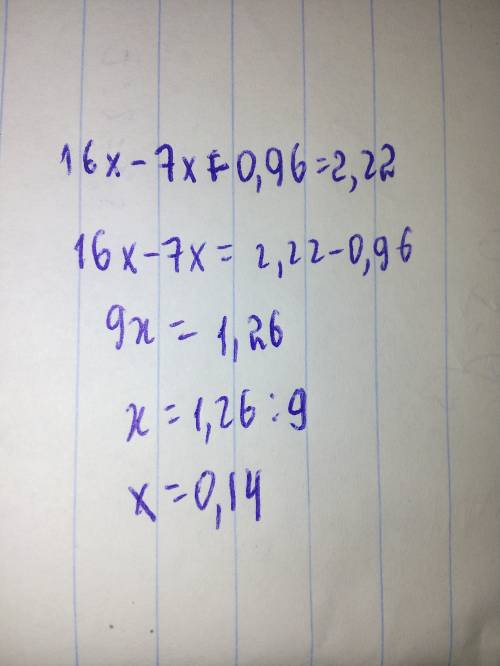 16x-7x+0,96=2,22
16x-7x=2,22-0,96
9x=1,26
x=1,26:9
x=0,14